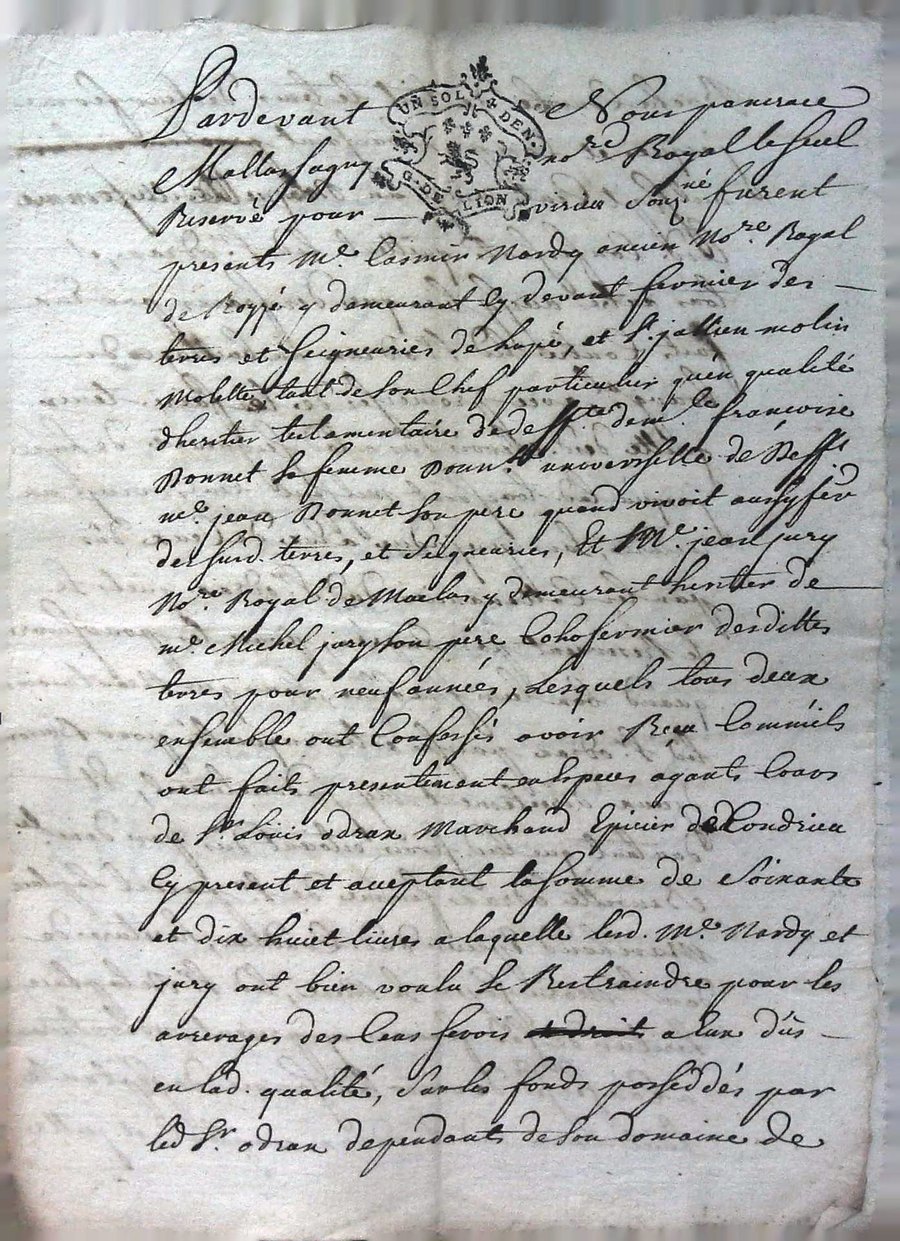 UN SOL DEN.
G. DE LION
Pardevant Nous pancrace
Mallassagny no.re Royal le seul
Reservé pour — virieu Souz.né furent
presents M.e Casimir Nardy ancien No.re Royal
de y demeurant Cy devant fermier des —
terres et Seigneuries de Lupé, et St. jullien molin
Molette tant de son Chef particulier quen qualité
dheritier testamentaire de deffte. dem.lle francoise
Bonnet Sa femme universelle de Defft
me. jean Bonnet son pere quand vivoit aussy fer.r
desusd. terres, et Seigneuries, Et M.e jean jury
No.re Royal de Maclas y demeurant heritier de —
me. Michel jury son pere Cohofermier desdittes
terres pour neuf années, Lesquels tous deux
ensemble ont Confessés avoir Receu Comm'ils
ont faits presentement en Especes ayants Cours
de Sr. Louis odran Marchand Epicier de Condrieu
Cy present et acceptant la somme de Soixante
et dix huict livres a laquelle lesd. M.e Nardy et
jury ont bien voulu se Restraindre pour les
arrerages des Cens servis et droits a Eux dûs —
en lad. qualité, Sur les fonds posseddés par
led Sr. odran dependants de son domaine de